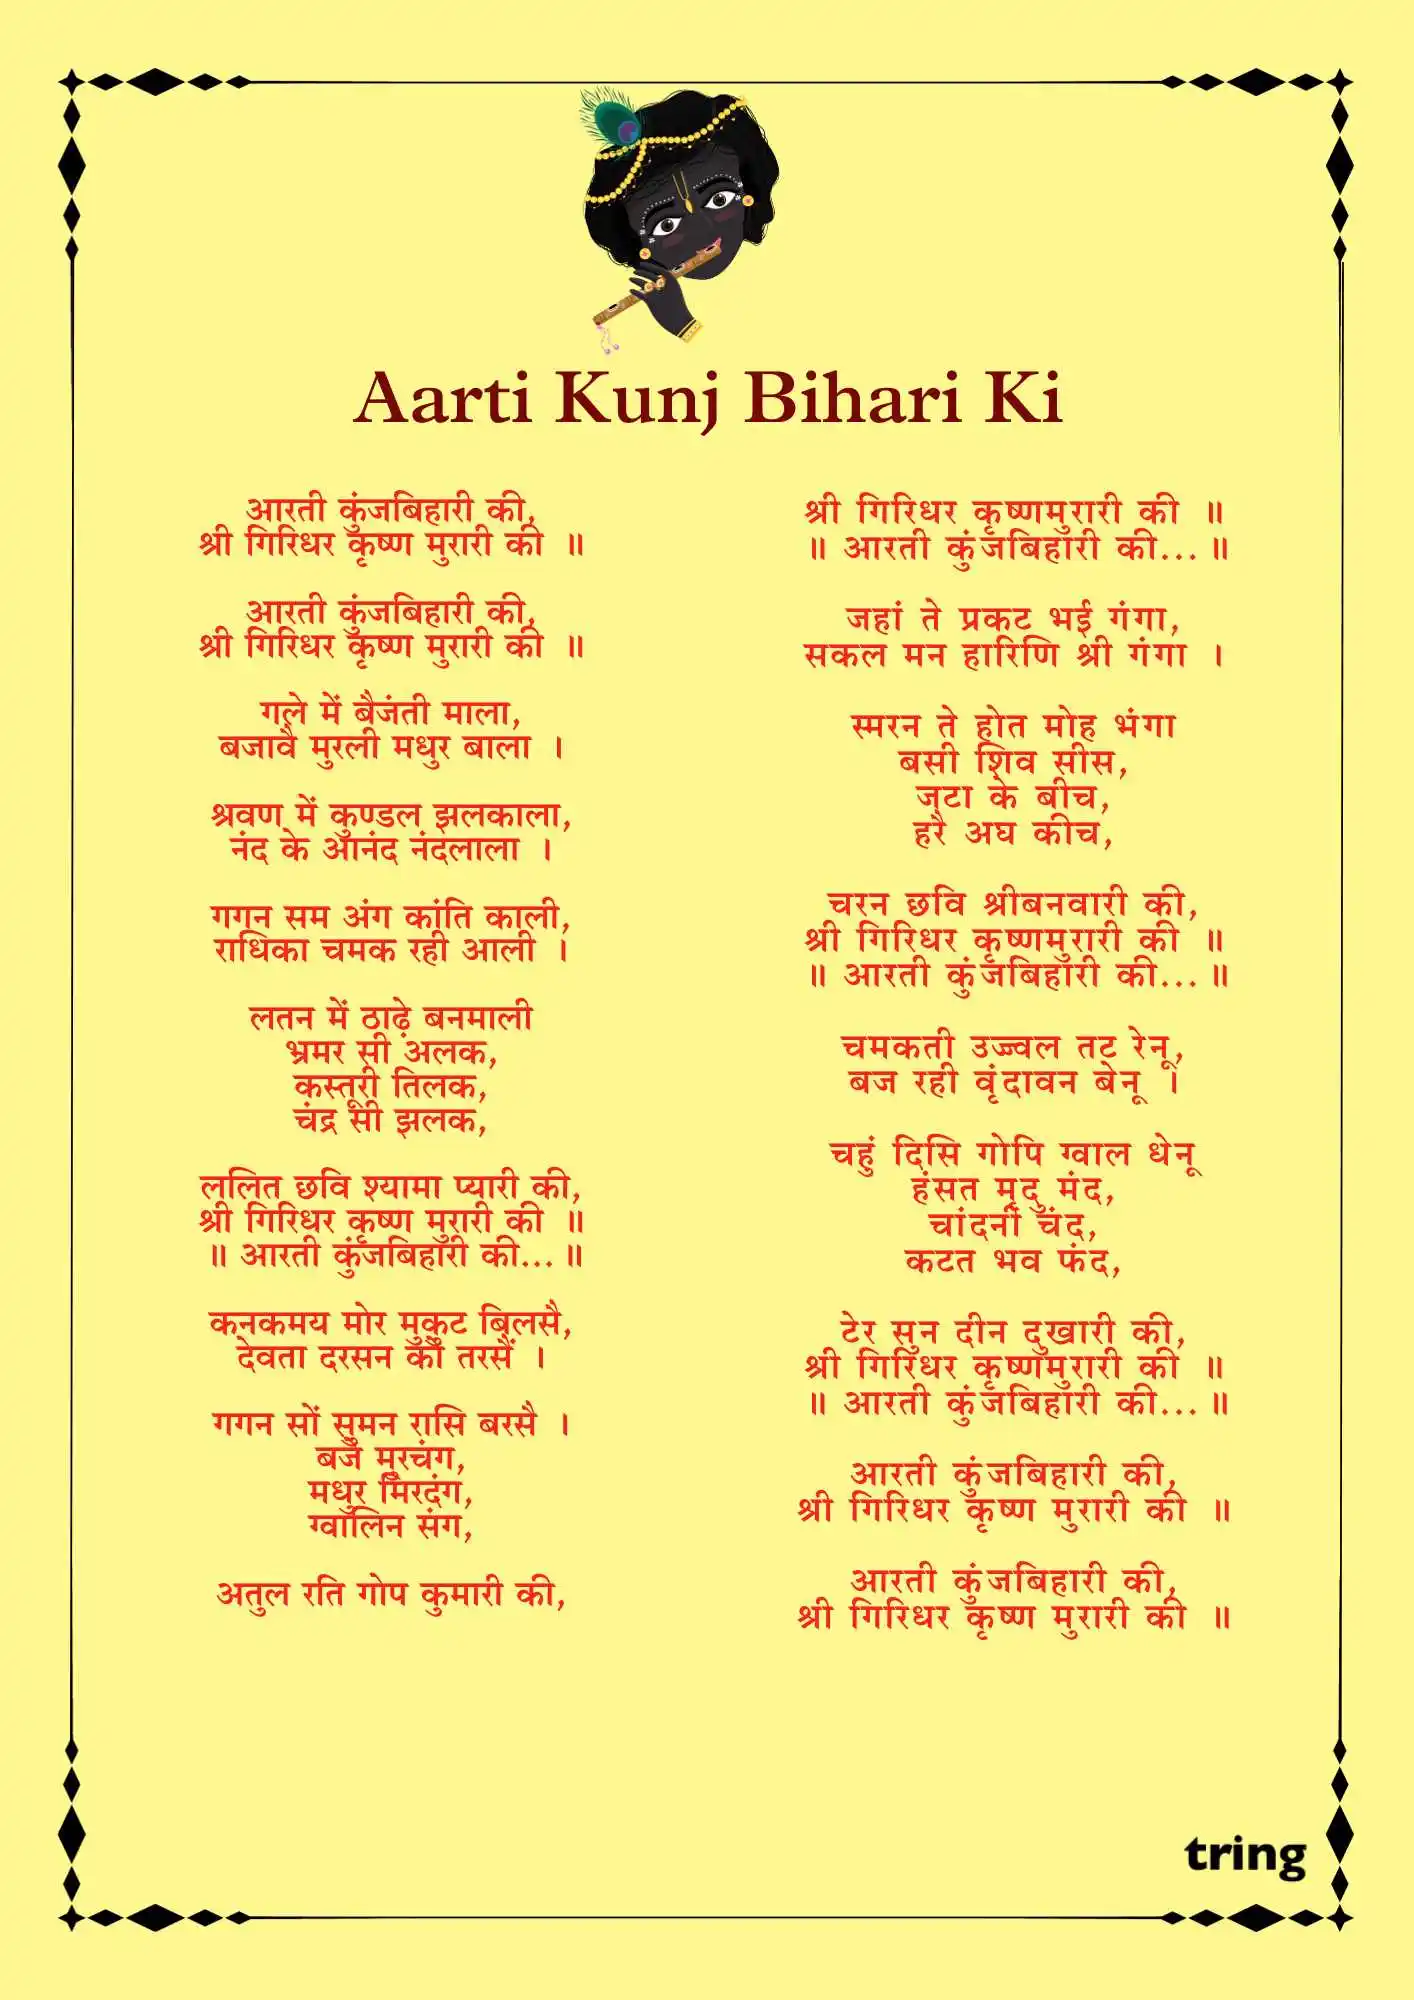 Aarti Kunj Bihari Ki
आरती कुंजबिहारी की,
श्री गिरिधर कृष्ण मुरारी की ॥
आरती कुंजबिहारी की,
श्री गिरिधर कृष्ण मुरारी की ॥
गले में बैजंती माला,
बजावै मुरली मधुर बाला ।
श्रवण में कुण्डल झलकाला,
नंद के आनंद नंदलाला ।
गगन सम अंग कांति काली,
राधिका चमक रही आली ।
लतन में ठाढ़े बनमाली
भ्रमर सी अलक,
कस्तूरी तिलक,
चंद्र सी झलक,
ललित छवि श्यामा प्यारी की,
श्री गिरिधर कृष्ण मुरारी की ॥
॥ आरती कुंजबिहारी की... ॥
कनकमय मोर मुकुट बिलसै,
देवता दरसन कौं तरसैं ।
गगन सों सुमन रासि बरसै ।
बजे मुरचंग,
मधुर मिरदंग,
ग्वालिन संग,
अतुल रति गोप कुमारी की,
श्री गिरिधर कृष्णमुरारी की ॥
॥ आरती कुंजबिहारी की... ॥
जहां ते प्रकट भई गंगा,
सकल मन हारिणि श्री गंगा ।
स्मरन ते होत मोह भंगा
बसी शिव सीस,
जटा के बीच,
हरै अघ कीच,
चरन छवि श्रीबनवारी की,
श्री गिरिधर कृष्णमुरारी की ॥
॥ आरती कुंजबिहारी की... ॥
चमकती उज्ज्वल तट रेनू,
बज रही वृंदावन बेनू ।
चहुं दिसि गोपि ग्वाल धेनू
हंसत मृदु मंद,
चांदनी चंद,
कटत भव फंद,
टेर सुन दीन दुखारी की,
श्री गिरिधर कृष्णमुरारी की ॥
॥ आरती कुंजबिहारी की... ॥
आरती कुंजबिहारी की,
श्री गिरिधर कृष्ण मुरारी की ॥
आरती कुंजबिहारी की,
श्री गिरिधर कृष्ण मुरारी की ॥
tring